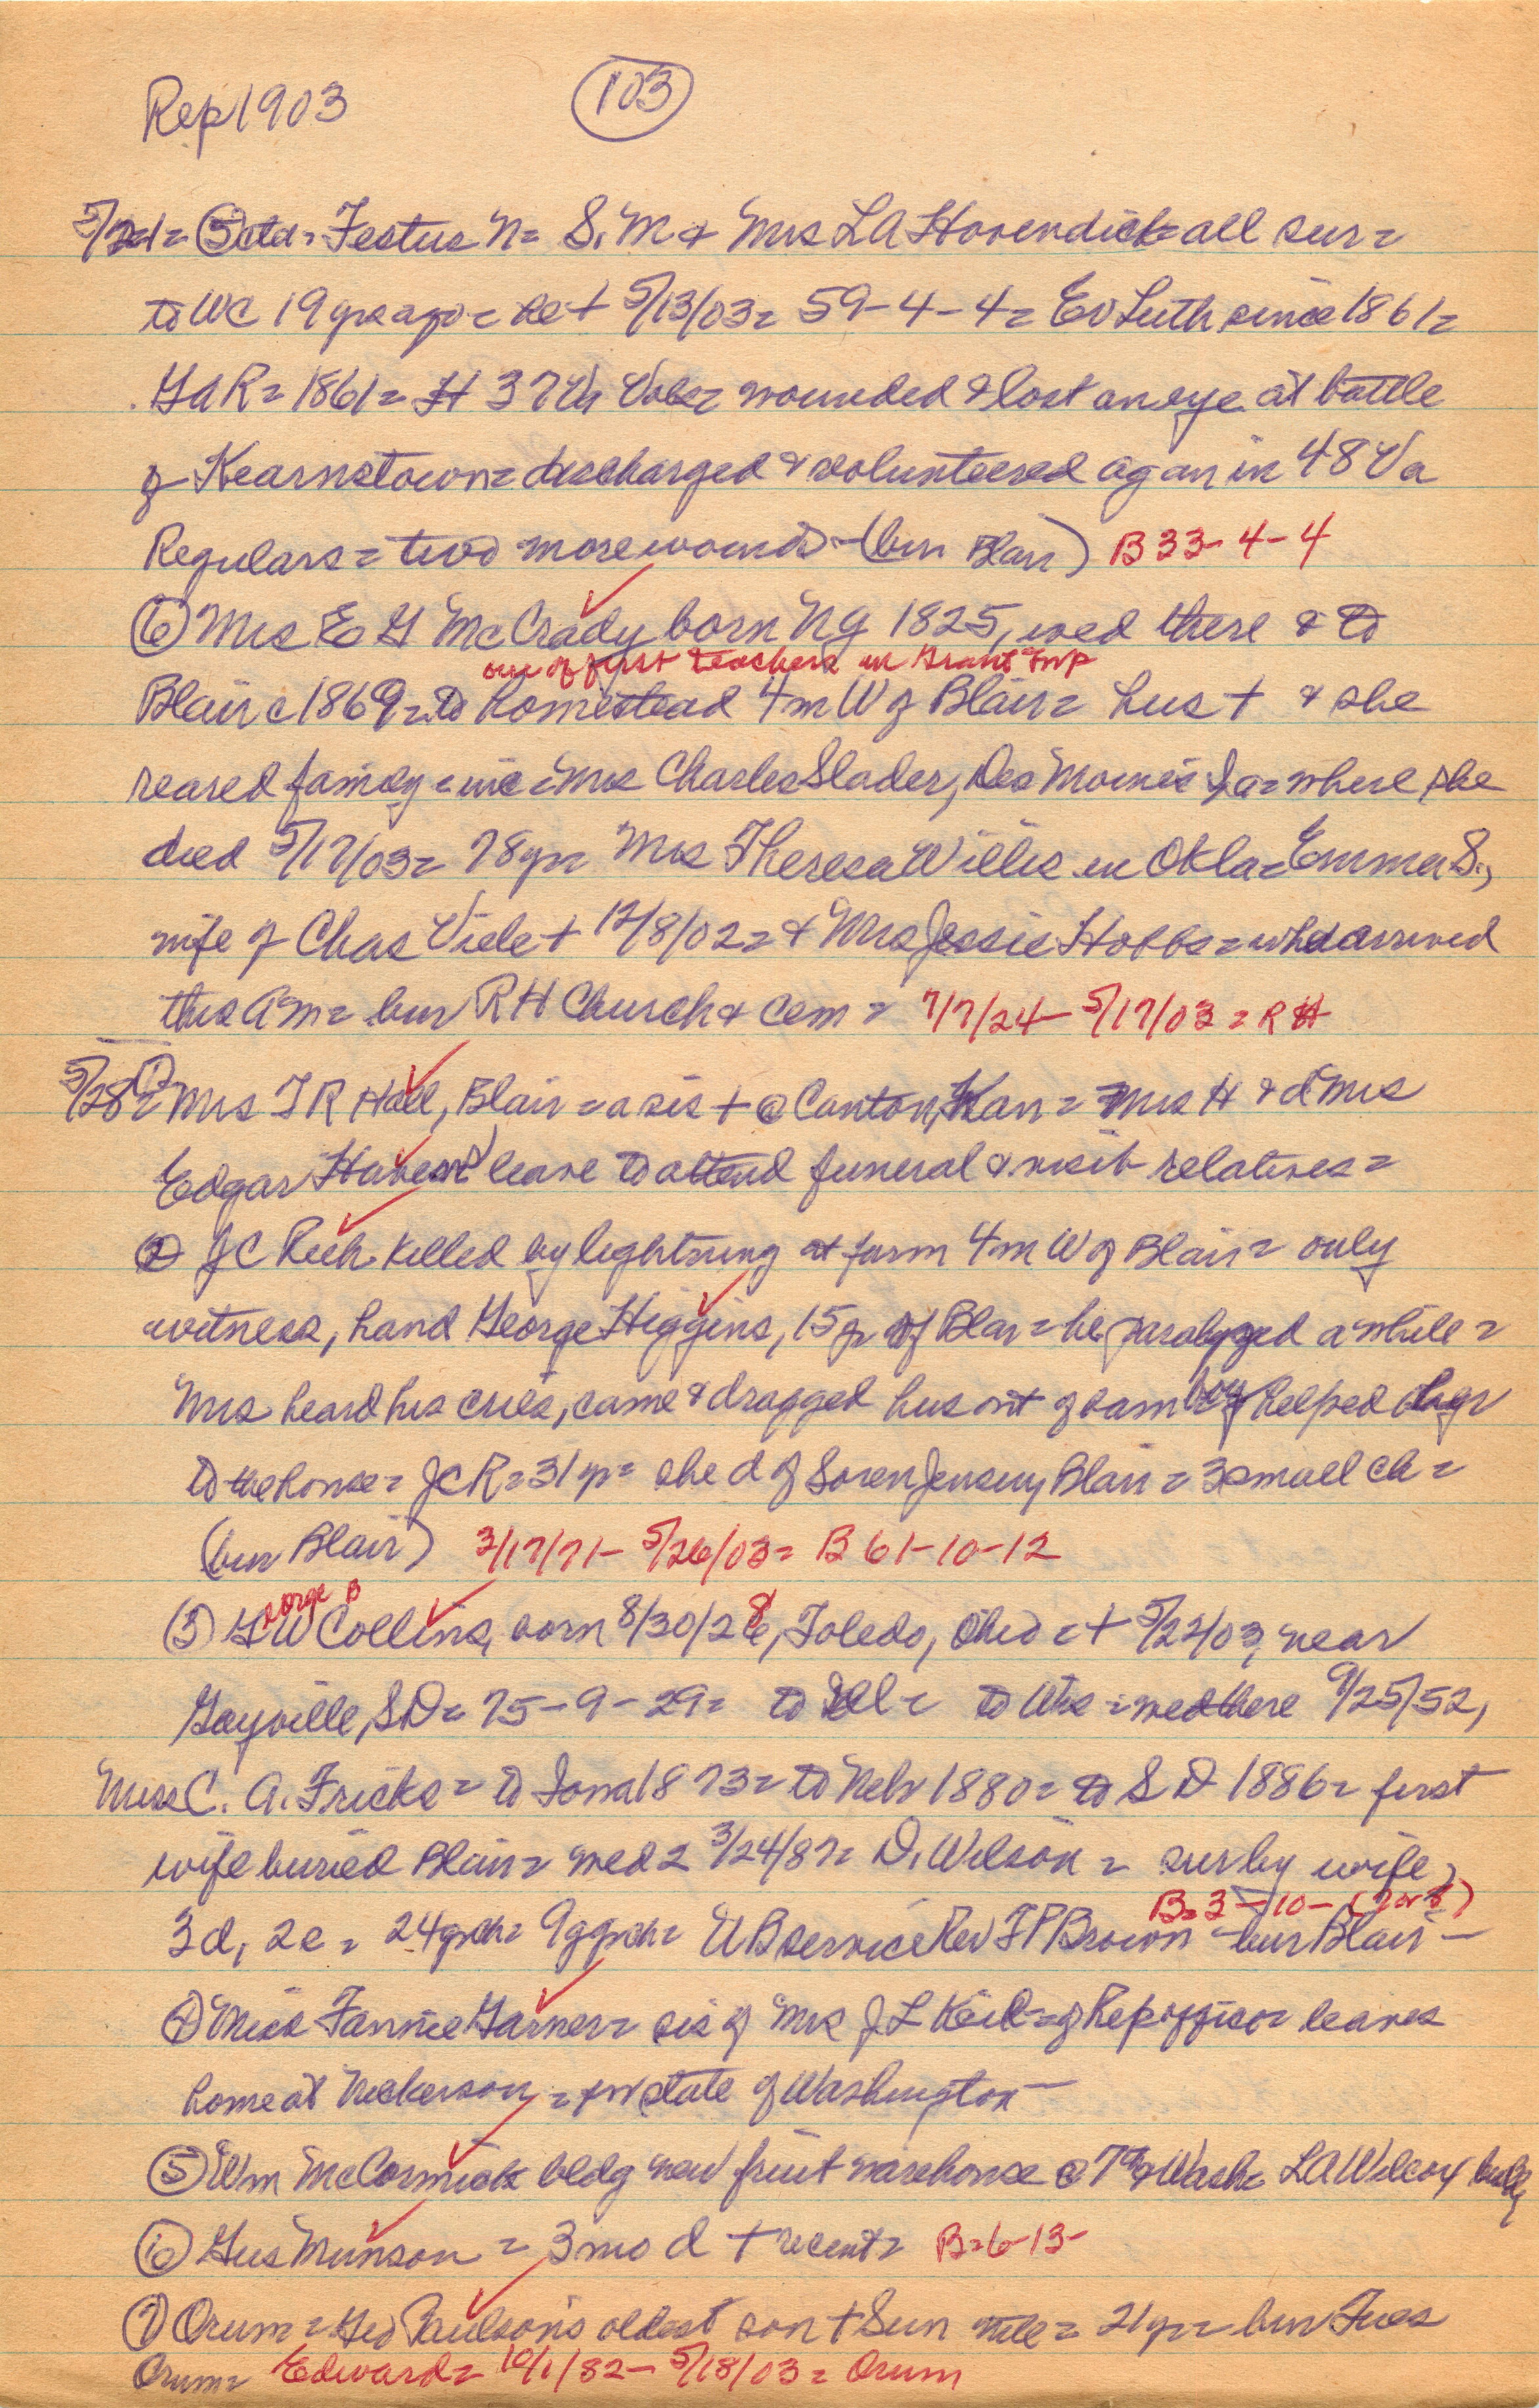 Rep 1903 (103)
5/21= (5 ctd= Festus N= S. M & Mrs L A Hovendick= all sur=
to WC 19 yrs ago= he + 5/13/03= 59-4-4= Ev Luth since 1861=
GAR= 1861= H 37 Va Vols= wounded & lost an eye at battle
of Kearnstown= discharged & volunteered again in 48 Va
Regulars= two more wounds- (bur Blair) B 33-4-4
(6) Mrs E G McCrady born NY 1825, wed there & to
one of first teachers in Grant Twp
Blair c 1869= to homestead 4 m W of Blair= hus + & she
reared family= inc= Mrs Charles Slader, Des Moines Ia= where she
died 5/17/03= 78 yr= Mrs Theresa Willis in Okla= Emma S.,
wife of Chas Viele + 12/8/02= & Mrs Jessie Hobbs= who arrived
this AM= bur R H Church & cem= 7/7/24- 5/17/03= R H
5/28= (1) Mrs T R Hall, Blair= a sis + @ Canton, Kan= Mrs H & d Mrs
Edgar leave to attend funeral & visit relatives=
(2) J C Rich killed by lightning at farm 4 m W of Blair= only
witness, hand George Higgins, 15 yr of Blair= he paralyzed a while=
Mrs heard his cries, came & dragged hus out of barn boy helped
to the house= JCR= 31 yr= she d of Soren Jensen, Blair= 3 small ch=
(bur Blair) 3/17/71- 5/26/03= B 61-10-12
orge B
(3) G W Collins, born 8/30/28, Toledo, Ohio= + 5/22/03, near
Gayville, SD= 75-9-29= to Ill= to Wis= wed there 9/25/52,
Miss C. A. Fricke= to Iowa 1873= to Neb 1880= to S D 1886= first
wife buried Blair= wed 2 3/24/87= D. Wilson= sur by wife,
B= 3-10- (7 or 8)
3 d, 2 s= 24 gch= 9 ggch= UB service Rev F P Brown- bur Blair-
(4) Miss Fannie Garner= sis of Mrs J L Keil= of Rep office= leaves
home at Nickerson= for state of Washington-
(5) Wm McCormick bldg new fruit warehouse @ 7th & Wash= L A Wilcox
(6) Gus Munson= 3 mo d + recent= B= 6-13-
(7) Orum= Geo Paulson's oldest son + Sun nite= 21 yr= bur Tues
Orum= Edward= 10/1/82- 5/18/03= Orum